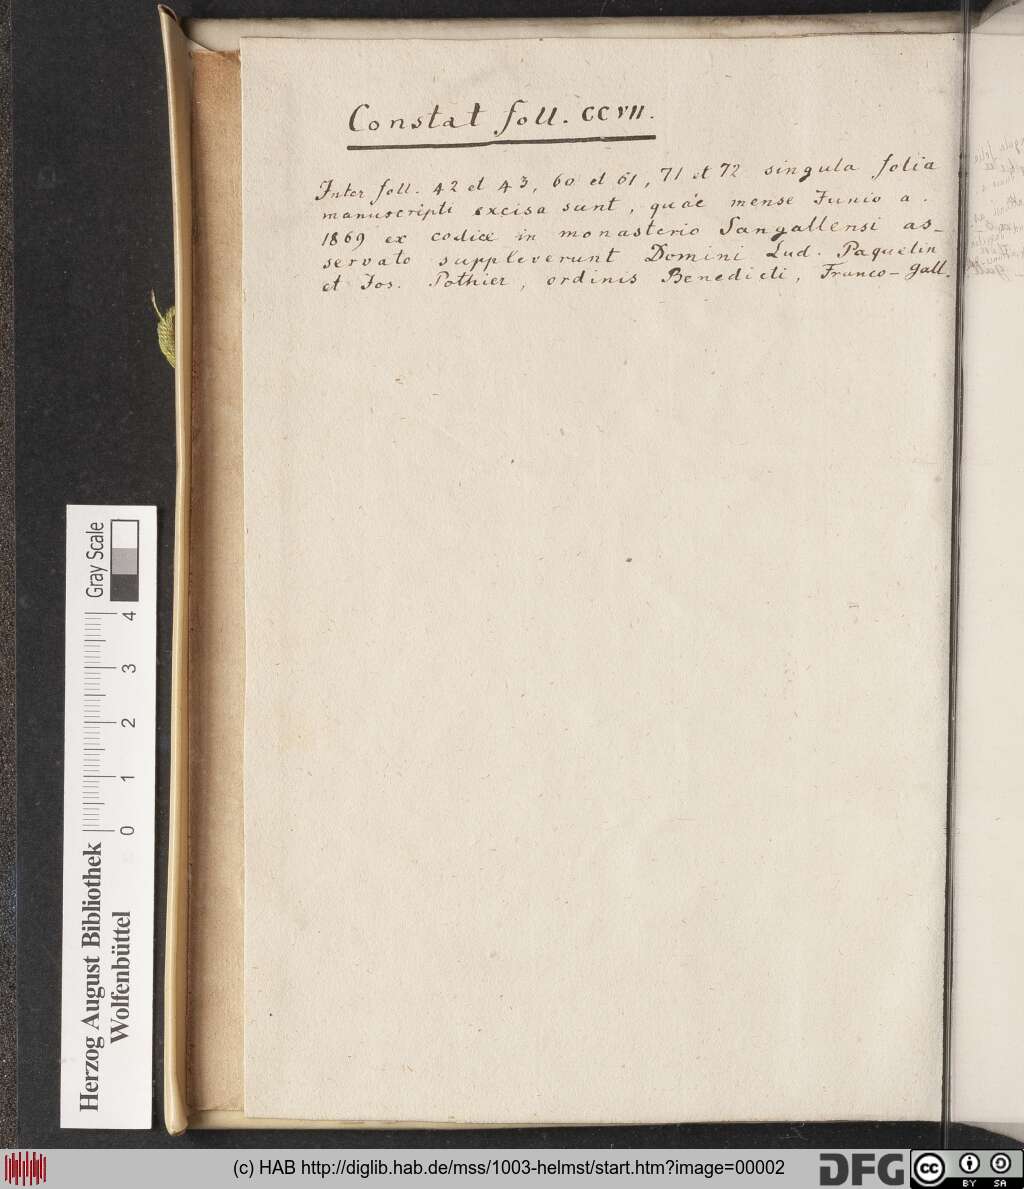 Constat foll. CCVII.
Inter foll. 42 et 43, 60 et 61, 71 et 72 singula folia
manuscripti excisa sunt, quae mense Junio a.
1869 ex codice in monasterio Sangallensi as-
servato suppleverunt Domini Lud. Paquelin
et Jos. Pothier, ordinis Benedicti, Franco-Gall.
Gray Scale
0 1 2 3 4
Herzog August Bibliothek
Wolfenbüttel
(c) HAB http://diglib.hab.de/mss/1003-helmst/start.htm?image=00002
DFG
cc
BY SA